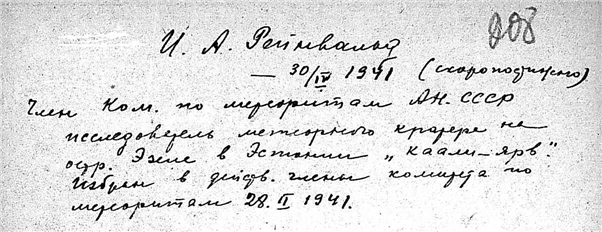 208
И. А. Рейнвальд
— 30/IV 1941 (скоропостижно)
Член Ком. по метеоритам АН. СССР
исследователь метеорного кратера на
остр. Эзеле в Эстонии „Каали-ярв".
Избран в действ. члены комитета по
метеоритам 28.II 1941.